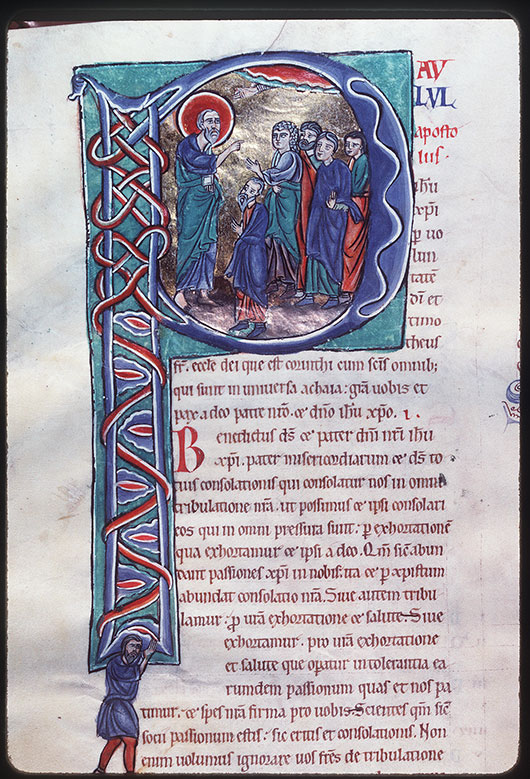 AV
LVL
aposto
lus·
ihu
xpi
p uo
lun
tatē
di et
timo
theus
fr̄. eccle dei que est corinthi cum scīs omnib;
qui sunt in uniuersa achaia: grā uobis et
pax a deo patre nrō. & dnō ihu xpō. .i.
Benedictus ds̄ & pater dnī nrī ihu
xpi. pater misericordiarum & ds̄ to
tius consolationis qui consolatur nos in omni
tribulatione nrā. ut possimus & ipsi consolari
eos qui in omni pressura sunt: p exhortationē
qua exhortamur & ipsi a deo. Qm̄ sic̄ abun
dant passiones xpi in nobis: ita & p xpistum
abundat consolatio nrā. Siue autem tribu
lamur: p urā exhortatione & salute. Siue
exhortamur. pro urā exhortatione
et salute que opatur in tolerantia ea
rumdem passionum quas et nos pa
timur. & spes nrā firma pro uobis. Scientes qm̄ sic̄
socii passionum estis: sic eritis et consolationis. Non
enim uolumus ignorare uos frēs de tribulatione